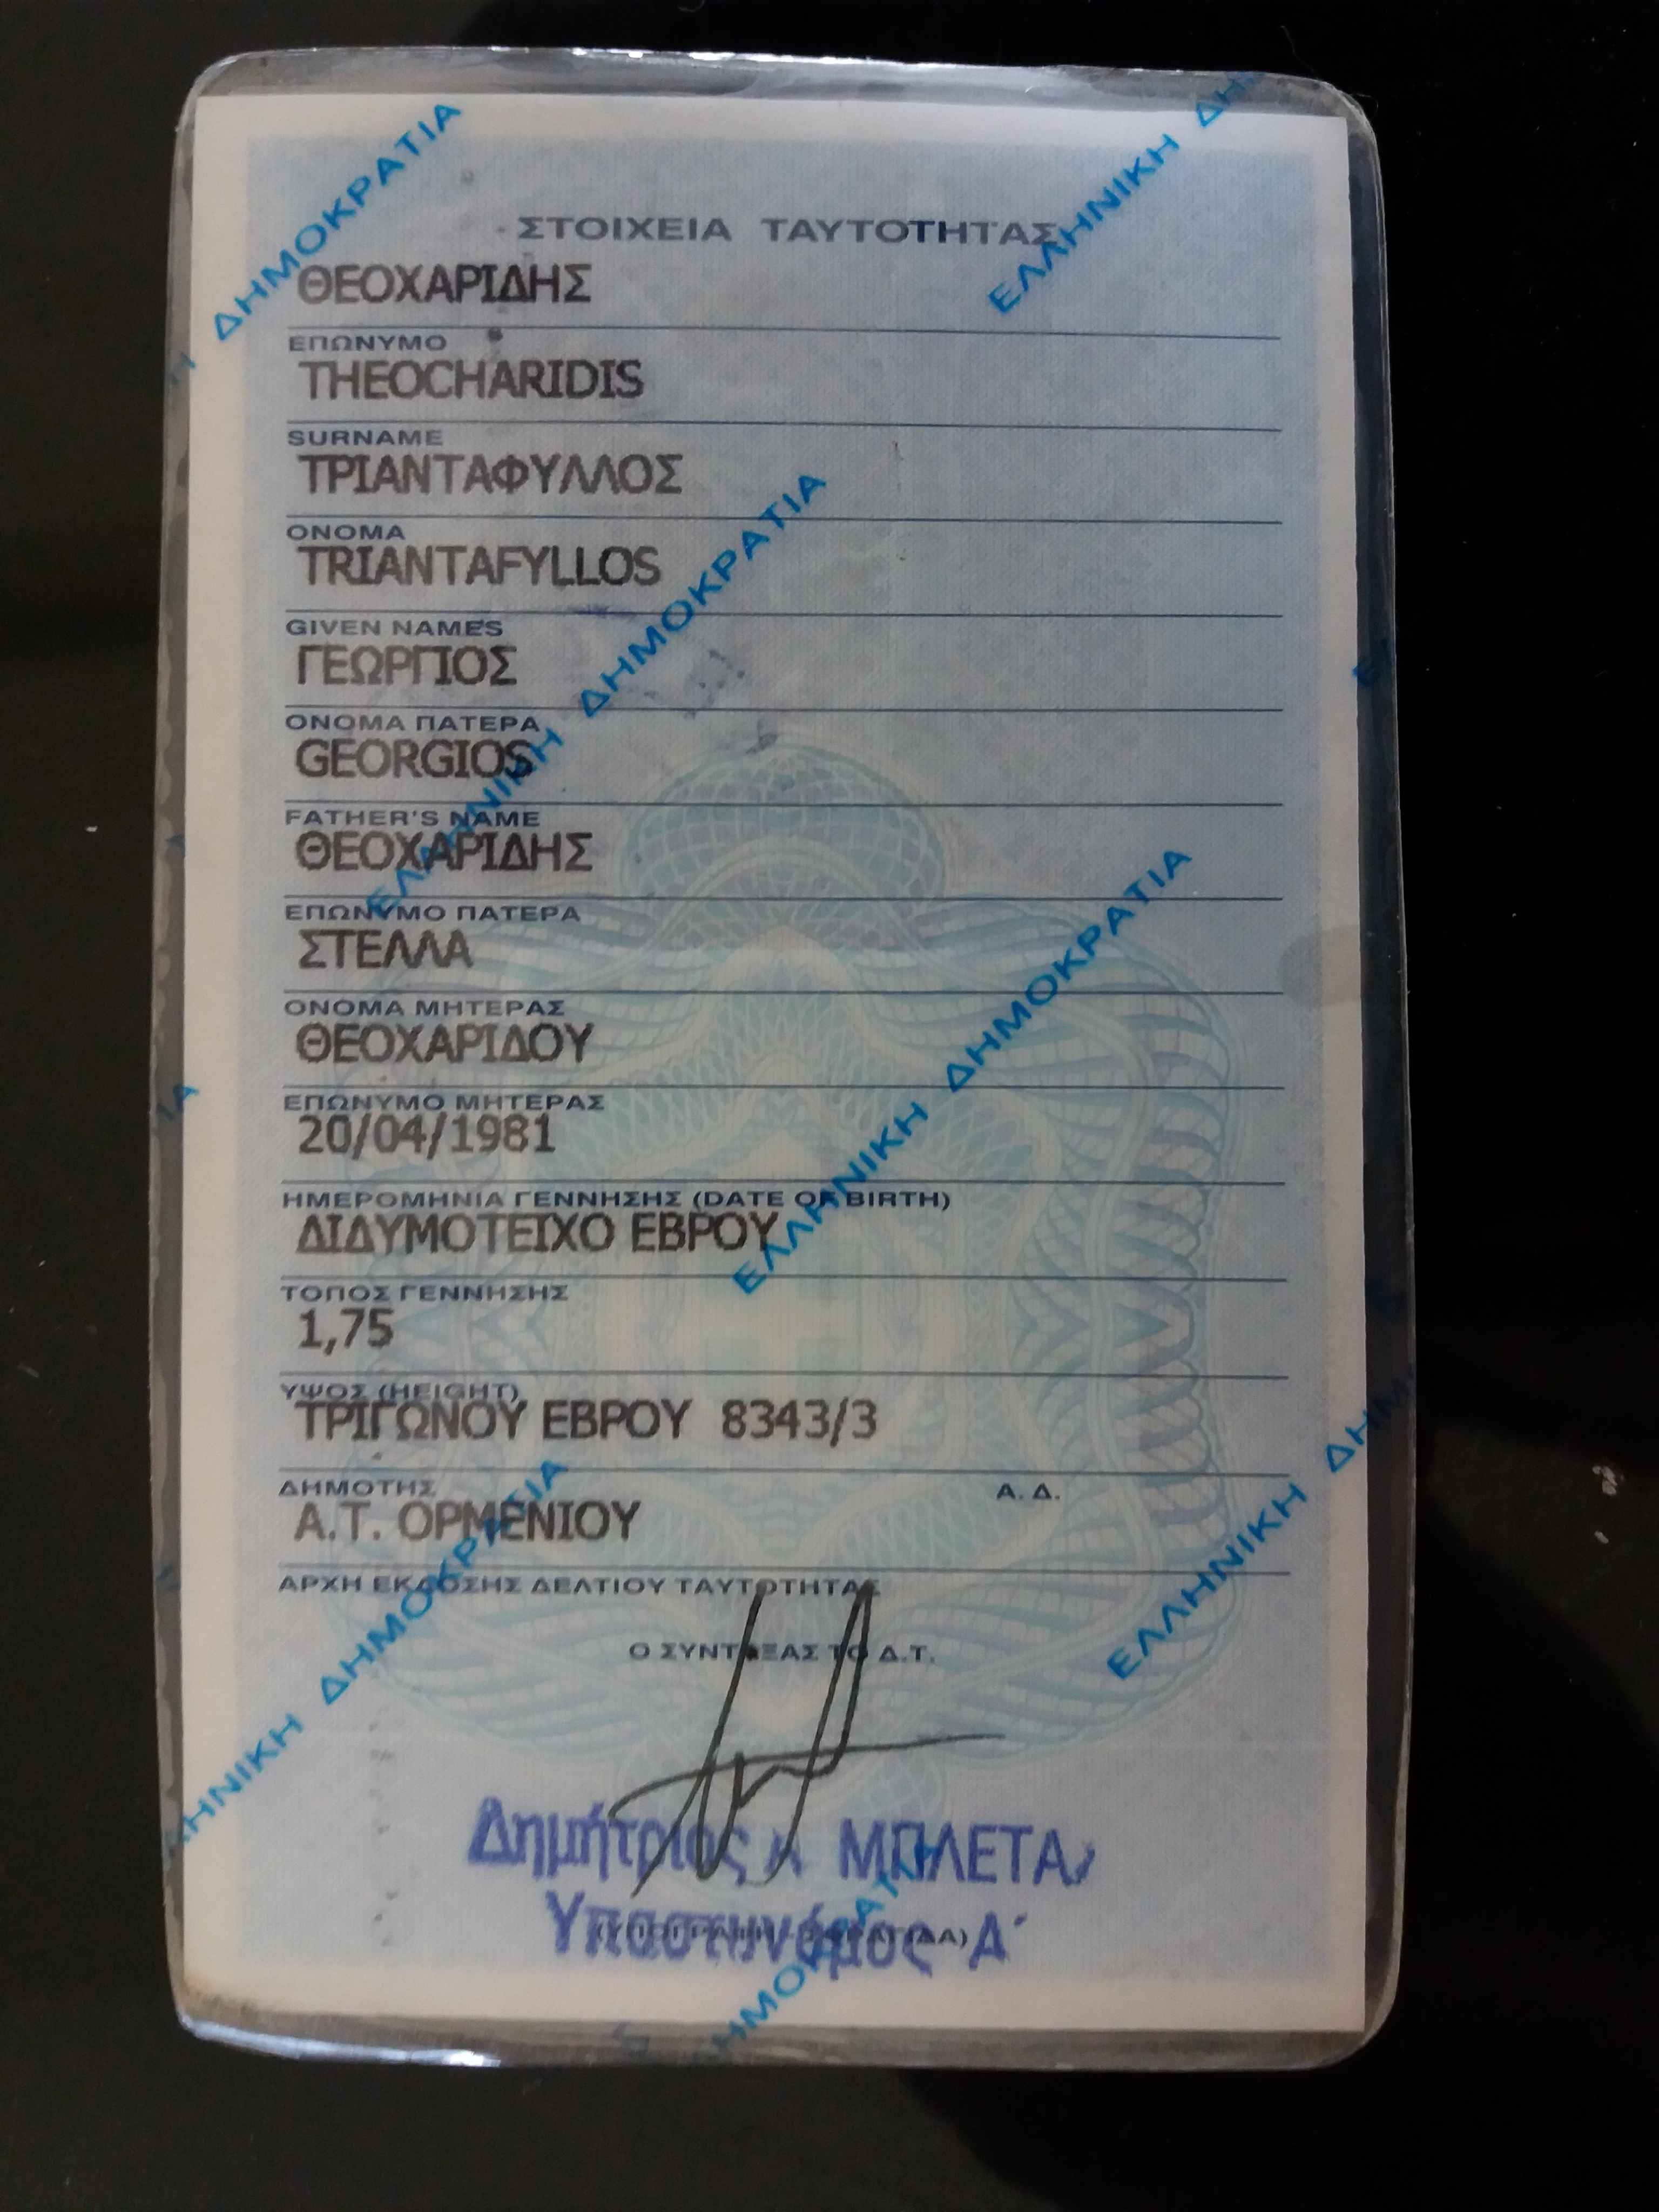 ΣΤΟΙΧΕΙΑ ΤΑΥΤΟΤΗΤΑΣ
ΘΕΟΧΑΡΙΔΗΣ
ΕΠΩΝΥΜΟ
THEOCHARIDIS
SURNAME
ΤΡΙΑΝΤΑΦΥΛΛΟΣ
ΟΝΟΜΑ
TRIANTAFYLLOS
GIVEN NAMES
ΓΕΩΡΓΙΟΣ
ΟΝΟΜΑ ΠΑΤΕΡΑ
GEORGIOS
FATHER'S NAME
ΘΕΟΧΑΡΙΔΗΣ
ΕΠΩΝΥΜΟ ΠΑΤΕΡΑ
ΣΤΕΛΛΑ
ΟΝΟΜΑ ΜΗΤΕΡΑΣ
ΘΕΟΧΑΡΙΔΟΥ
ΕΠΩΝΥΜΟ ΜΗΤΕΡΑΣ
20/04/1981
ΗΜΕΡΟΜΗΝΙΑ ΓΕΝΝΗΣΗΣ (DATE OF BIRTH)
ΔΙΔΥΜΟΤΕΙΧΟ ΕΒΡΟΥ
ΤΟΠΟΣ ΓΕΝΝΗΣΗΣ
1,75
ΥΨΟΣ (HEIGHT)
ΤΡΙΓΩΝΟΥ ΕΒΡΟΥ 8343/3
ΔΗΜΟΤΗΣ Α.Δ.
Α.Τ. ΟΡΜΕΝΙΟΥ
ΑΡΧΗ ΕΚΔΟΣΗΣ ΔΕΛΤΙΟΥ ΤΑΥΤΟΤΗΤΑΣ
Ο ΣΥΝΤΑΞΑΣ ΤΟ Δ.Τ.
Δημήτριος ΜΠΛΕΤΑ
Υπαστυνόμος Α΄
ΕΛΛΗΝΙΚΗ ΔΗΜΟΚΡΑΤΙΑ
ΕΛΛΗΝΙΚΗ ΔΗΜΟΚΡΑΤΙΑ